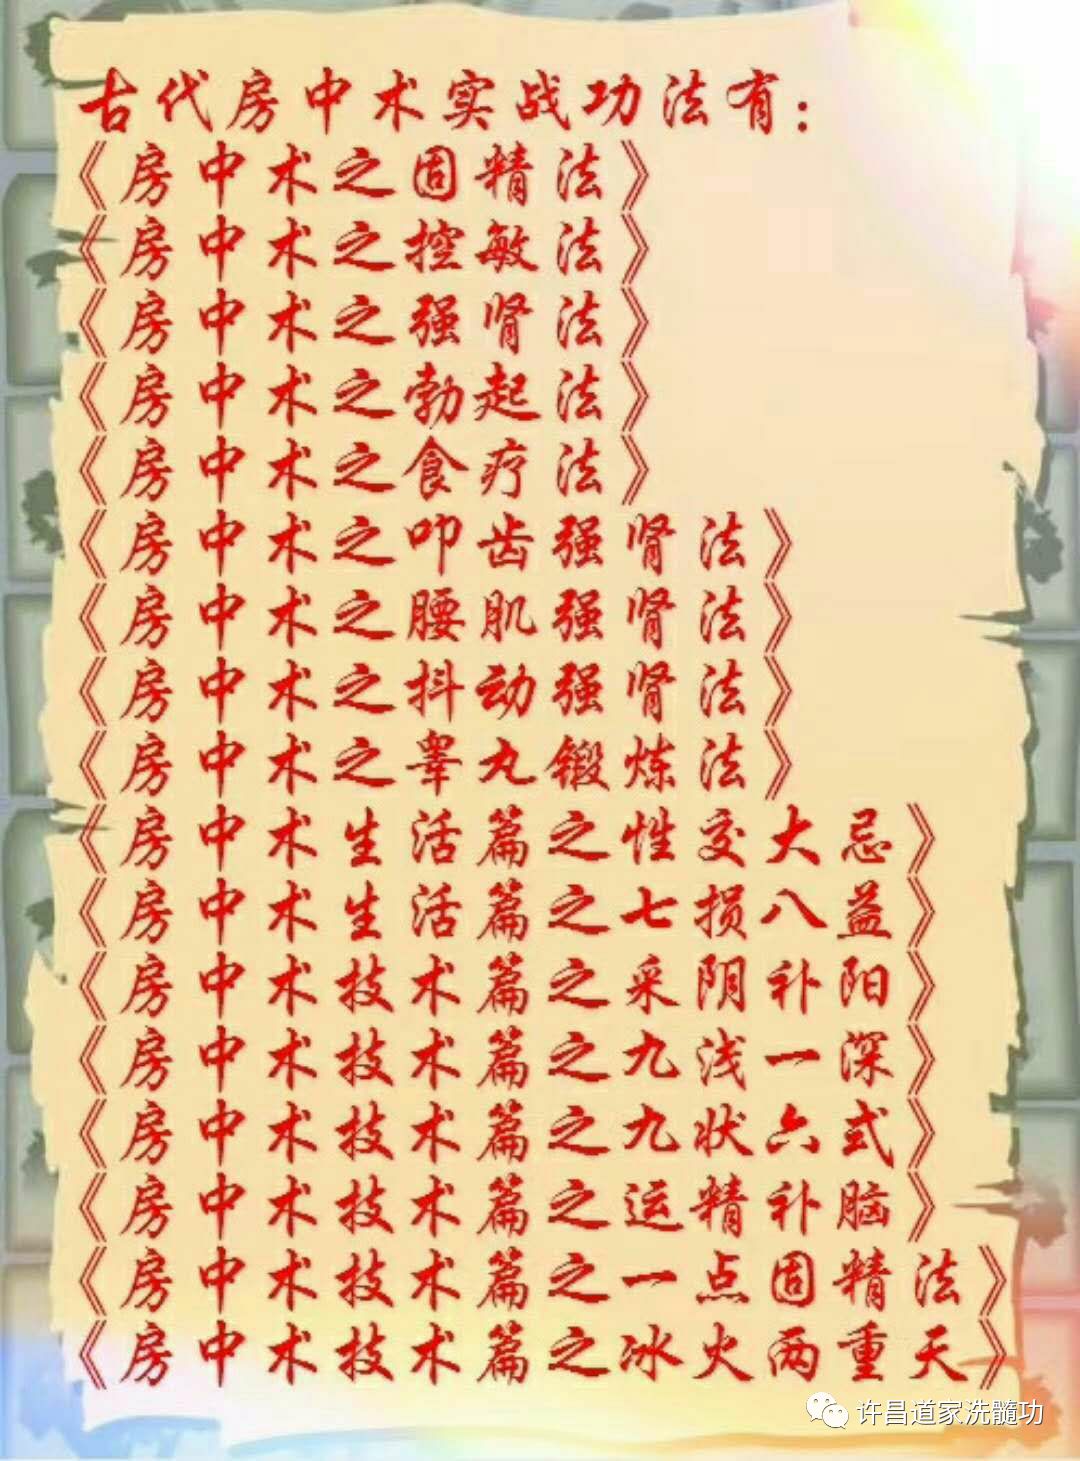 古代房中术实战功法有：
《房中术之固精法》
《房中术之控敏法》
《房中术之强肾法》
《房中术之勃起法》
《房中术之食疗法》
《房中术之叩齿强肾法》
《房中术之腰肌强肾法》
《房中术之抖动强肾法》
《房中术之睾丸锻炼法》
《房中术生活篇之性交大忌》
《房中术生活篇之七损八益》
《房中术技术篇之采阴补阳》
《房中术技术篇之九浅一深》
《房中术技术篇之九状六式》
《房中术技术篇之运精补脑》
《房中术技术篇之一点固精法》
《房中术技术篇之冰火两重天》
许昌道家洗髓功